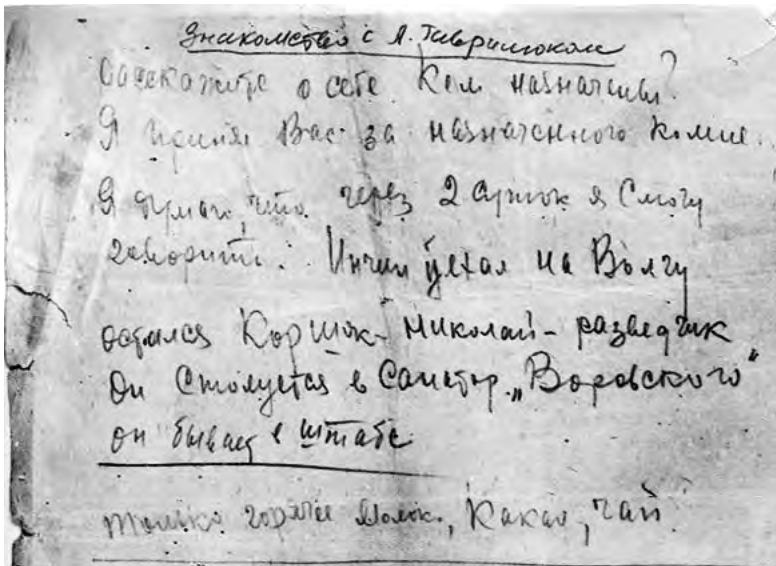 Знакомство с А. Гаврилюком
Расскажите о себе. Кем назначены?
Я принял Вас за назначенного комис.
Я думаю, что через 2 суток я смогу
говорить. уехал на Волгу
остался Коршок - Николай - разведчик
Он столуется в Санатор. „Воровского"
он бывает в штабе
только горячее молок., Какао, чай.